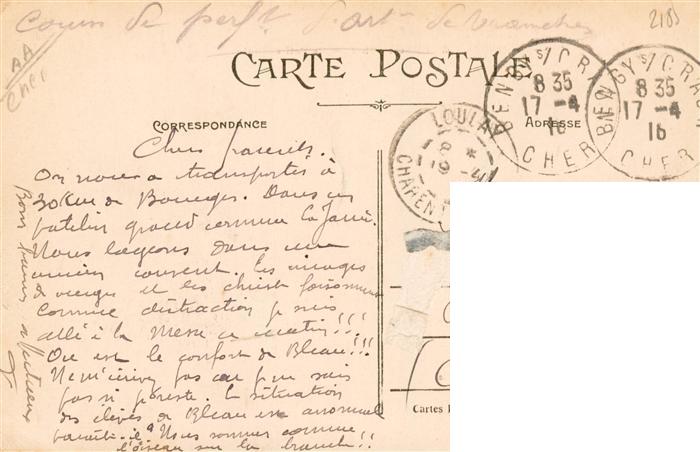 Cours de perft d'artie de tranchées
2185
AA
Cher
CARTE POSTALE
CORRESPONDANCE
ADRESSE
BENGY S/ CRA
8 35
17 - 4
16
CHER
BENGY S/ CRA
8 35
17 - 4
16
CHER
LOULAY
8 *
19 - 4
CHARENT
Chers parents.
On nous a transportés à
30 Km de Bourges. Dans un
patelin grand comme la Jarrie.
Nous logeons dans un
ancien couvent. Les images
de vierges et les christ foisonnent
Comme distraction je suis
allé à la Messe ce matin!!!
Où est le confort de Bleau!!!
Ne m'écrivez pas car je ne sais
pas si je reste. La situation
des élèves de Bleau est anormale
paraît-il. Nous sommes comme
l'oiseau sur la branche!!
Bons baisers affectueux
Cartes